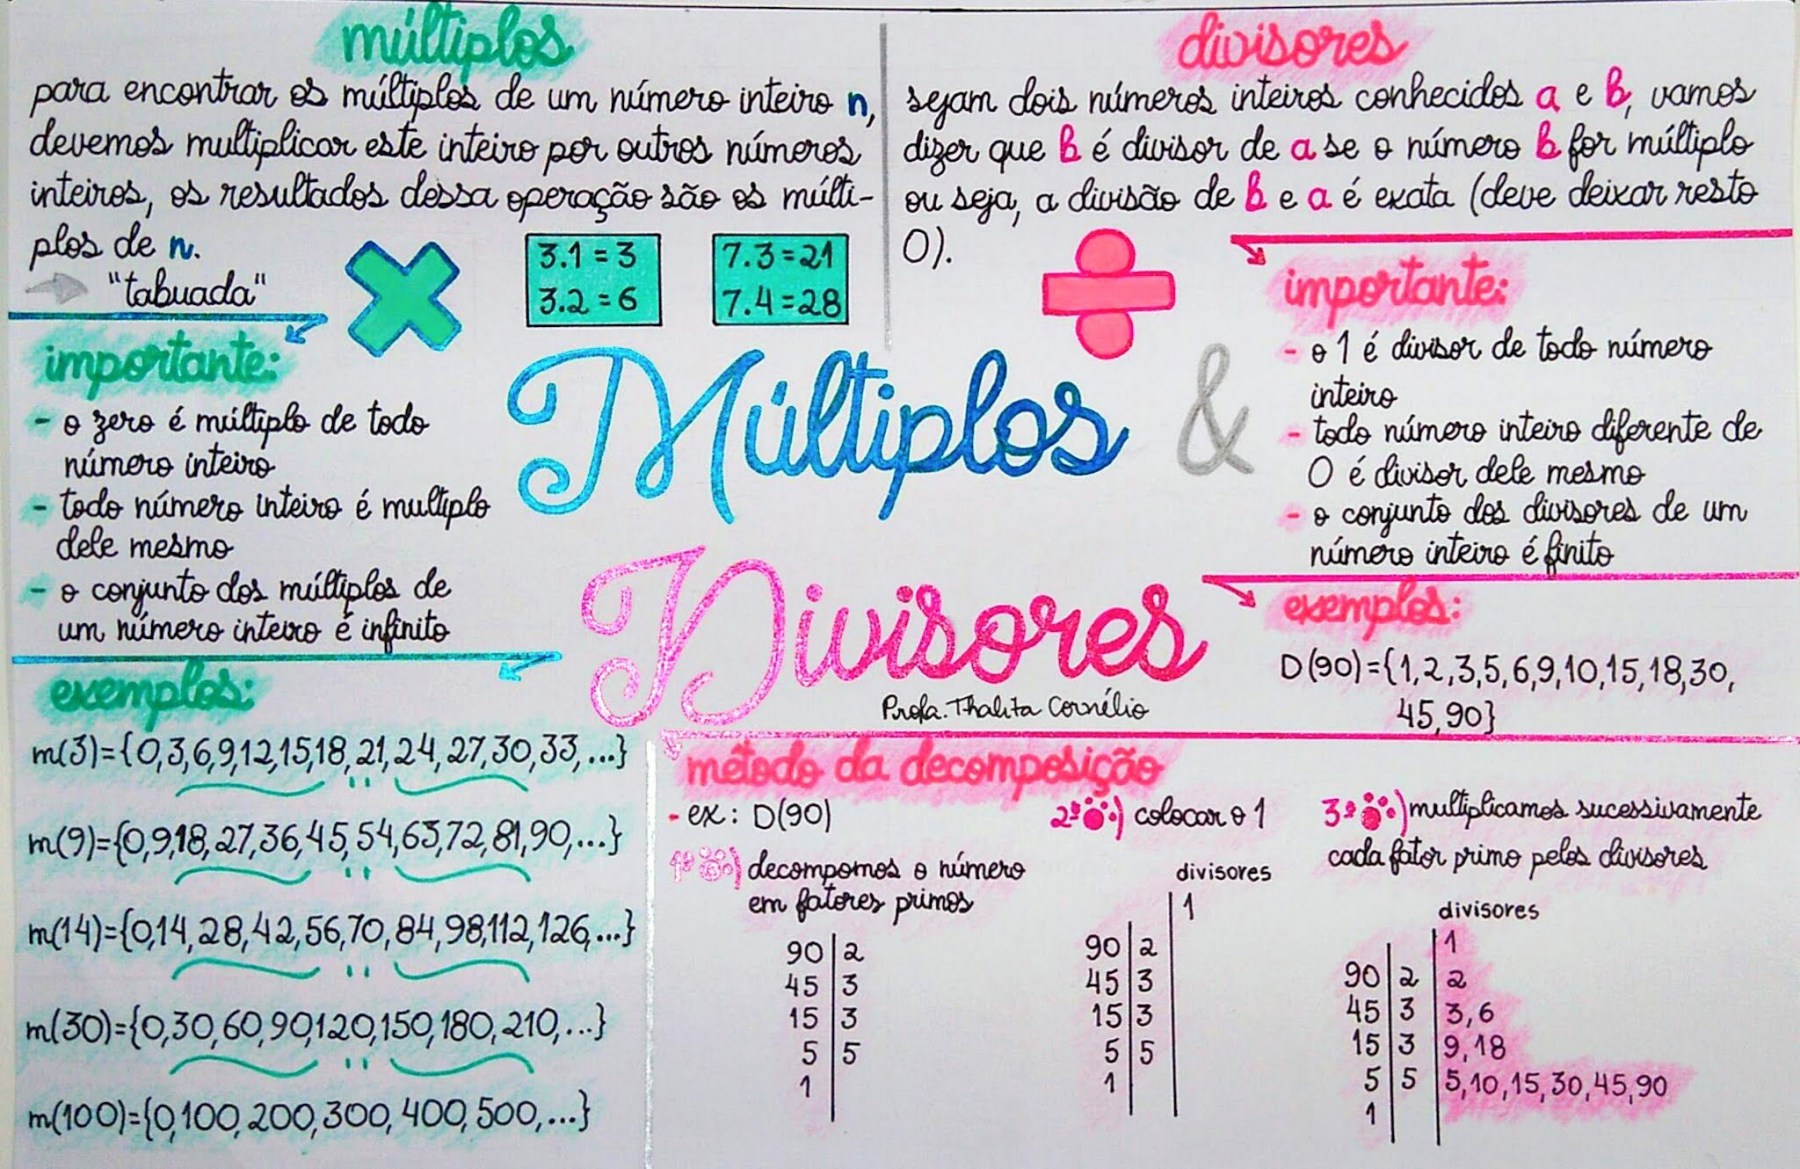 múltiplos
para encontrar os múltiplos de um número inteiro n,
devemos multiplicar este inteiro por outros números
inteiros, os resultados dessa operação são os múlti-
plos de n.
"tabuada"
3.1 = 3
3.2 = 6
7.3 = 21
7.4 = 28
importante:
- o zero é múltiplo de todo
número inteiro
- todo número inteiro é multiplo
dele mesmo
- o conjunto dos múltiplos de
um número inteiro é infinito
exemplos:
m(3)={0,3,6,9,12,15,18,21,24,27,30,33,...}
m(9)={0,9,18,27,36,45,54,63,72,81,90,...}
m(14)={0,14,28,42,56,70,84,98,112,126,...}
m(30)={0,30,60,90,120,150,180,210,...}
m(100)={0,100,200,300,400,500,...}
Múltiplos &
Divisores
Profa. Thalita Cornélio
divisores
sejam dois números inteiros conhecidos a e b, vamos
dizer que b é divisor de a se o número b for múltiplo
ou seja, a divisão de b e a é exata (deve deixar resto
0).
importante:
- o 1 é divisor de todo número
inteiro
- todo número inteiro diferente de
0 é divisor dele mesmo
- o conjunto dos divisores de um
número inteiro é finito
exemplos:
D(90)={1,2,3,5,6,9,10,15,18,30,
45,90}
método da decomposição
- ex: D(90)
1º) decompomos o número
em fatores primos
90 | 2
45 | 3
15 | 3
5 | 5
1
2º) colocar o 1
divisores
1
90 | 2
45 | 3
15 | 3
5 | 5
1
3º) multiplicamos sucessivamente
cada fator primo pelos divisores
divisores
1
90 | 2 | 2
45 | 3 | 3,6
15 | 3 | 9,18
5 | 5 | 5,10,15,30,45,90
1